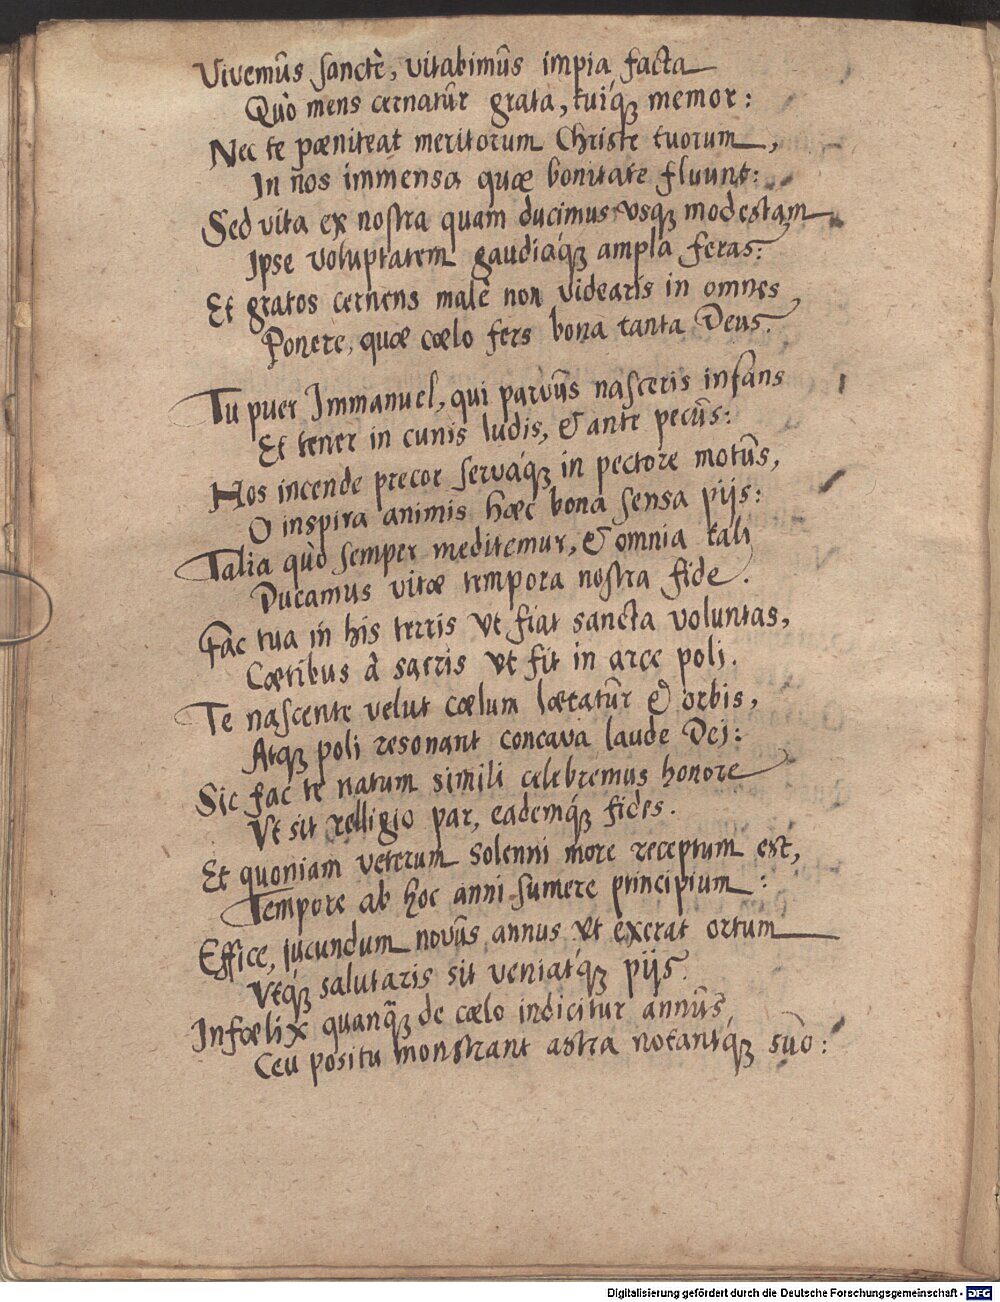 Vivemus sanctè, vitabimus impia facta
Quò mens cernatur grata, tuíq́ꝫ memor:
Nec te pœniteat meritorum Christe tuorum,
In nos immensa quæ bonitate fluunt:
Sed vita ex nostra quam ducimus vsqꝫ modestam
Ipse voluptatem gaudiáq́ꝫ ampla feras:
Et gratos cernens malè non videaris in omnes
Ponere, quæ cœlo fers bona tanta Deus.
Tu puer Immanuel, qui parvus nasceris infans
Et tener in cunis ludis, & ante pecus:
Hos incende precor serváq́ꝫ in pectore motus,
O inspira animis hæc bona sensa pijs:
Talia quò semper meditemur, & omnia tali
Ducamus vitæ tempora nostra fide.
Fac tua in his terris vt fiat sancta voluntas,
Cœtibus à sacris vt fit in arce poli.
Te nascente velut cœlum lætatur & orbis,
Atqꝫ poli resonant concava laude Dei:
Sic fac te natum simili celebremus honore
Vt sit relligio par, eademq́ꝫ fides.
Et quoniam veterum solenni more receptum est,
Tempore ab hoc anni sumere principium:
Effice, jucundum novus annus vt exerat ortum
Vtq́ꝫ salutaris sit veniatq́ꝫ pijs.
Infœlix quanq̃ꝫ de cœlo indicitur annus,
Ceu positu monstrant astra notantq́ꝫ suo:
Digitalisierung gefördert durch die Deutsche Forschungsgemeinschaft - DFG